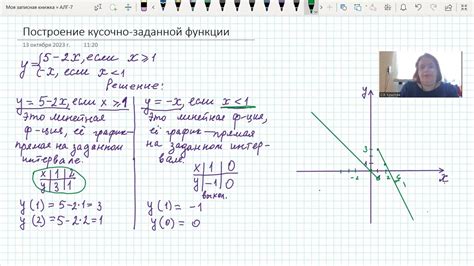 Моя записная книжка » АЛГ-7
Построение кусочно-заданной функции
13 октября 2023 г. 11:20
y = { 5-2x, если x ≥ 1
-x, если x < 1
Решение:
y = 5-2x, если x ≥ 1
Это линейная
ф-ция, её график-
прямая на заданном
интервале.
x | 1 | 2
y | 3 | 1
y(1) = 5-2·1 = 3
y(2) = 5-2·2 = 1
y = -x, если x < 1
Это линейная ф-ция,
её график - прямая
на заданном интер-
вале.
x | 1 | 0
y | -1 | 0
выкол.
y(1) = -1
y(0) = 0
y
3
1
-2
2
x